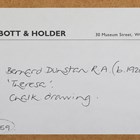 BOTT & HOLDER
30 Museum Street, W
Bernard Dunstan R.A (b.1920
'Therese'.
Chalk drawing.
59